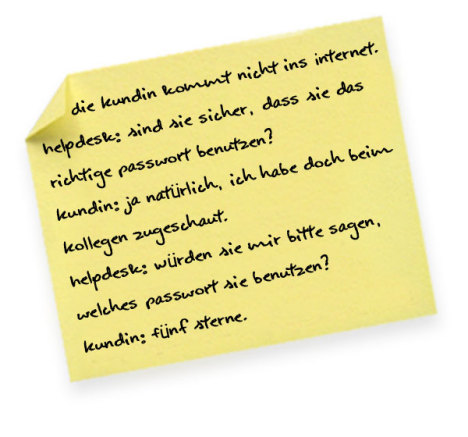 die kundin kommt nicht ins internet.
helpdesk: sind sie sicher, dass sie das
richtige passwort benutzen?
kundin: ja natürlich, ich habe doch beim
kollegen zugeschaut.
helpdesk: würden sie mir bitte sagen,
welches passwort sie benutzen?
kundin: fünf sterne.